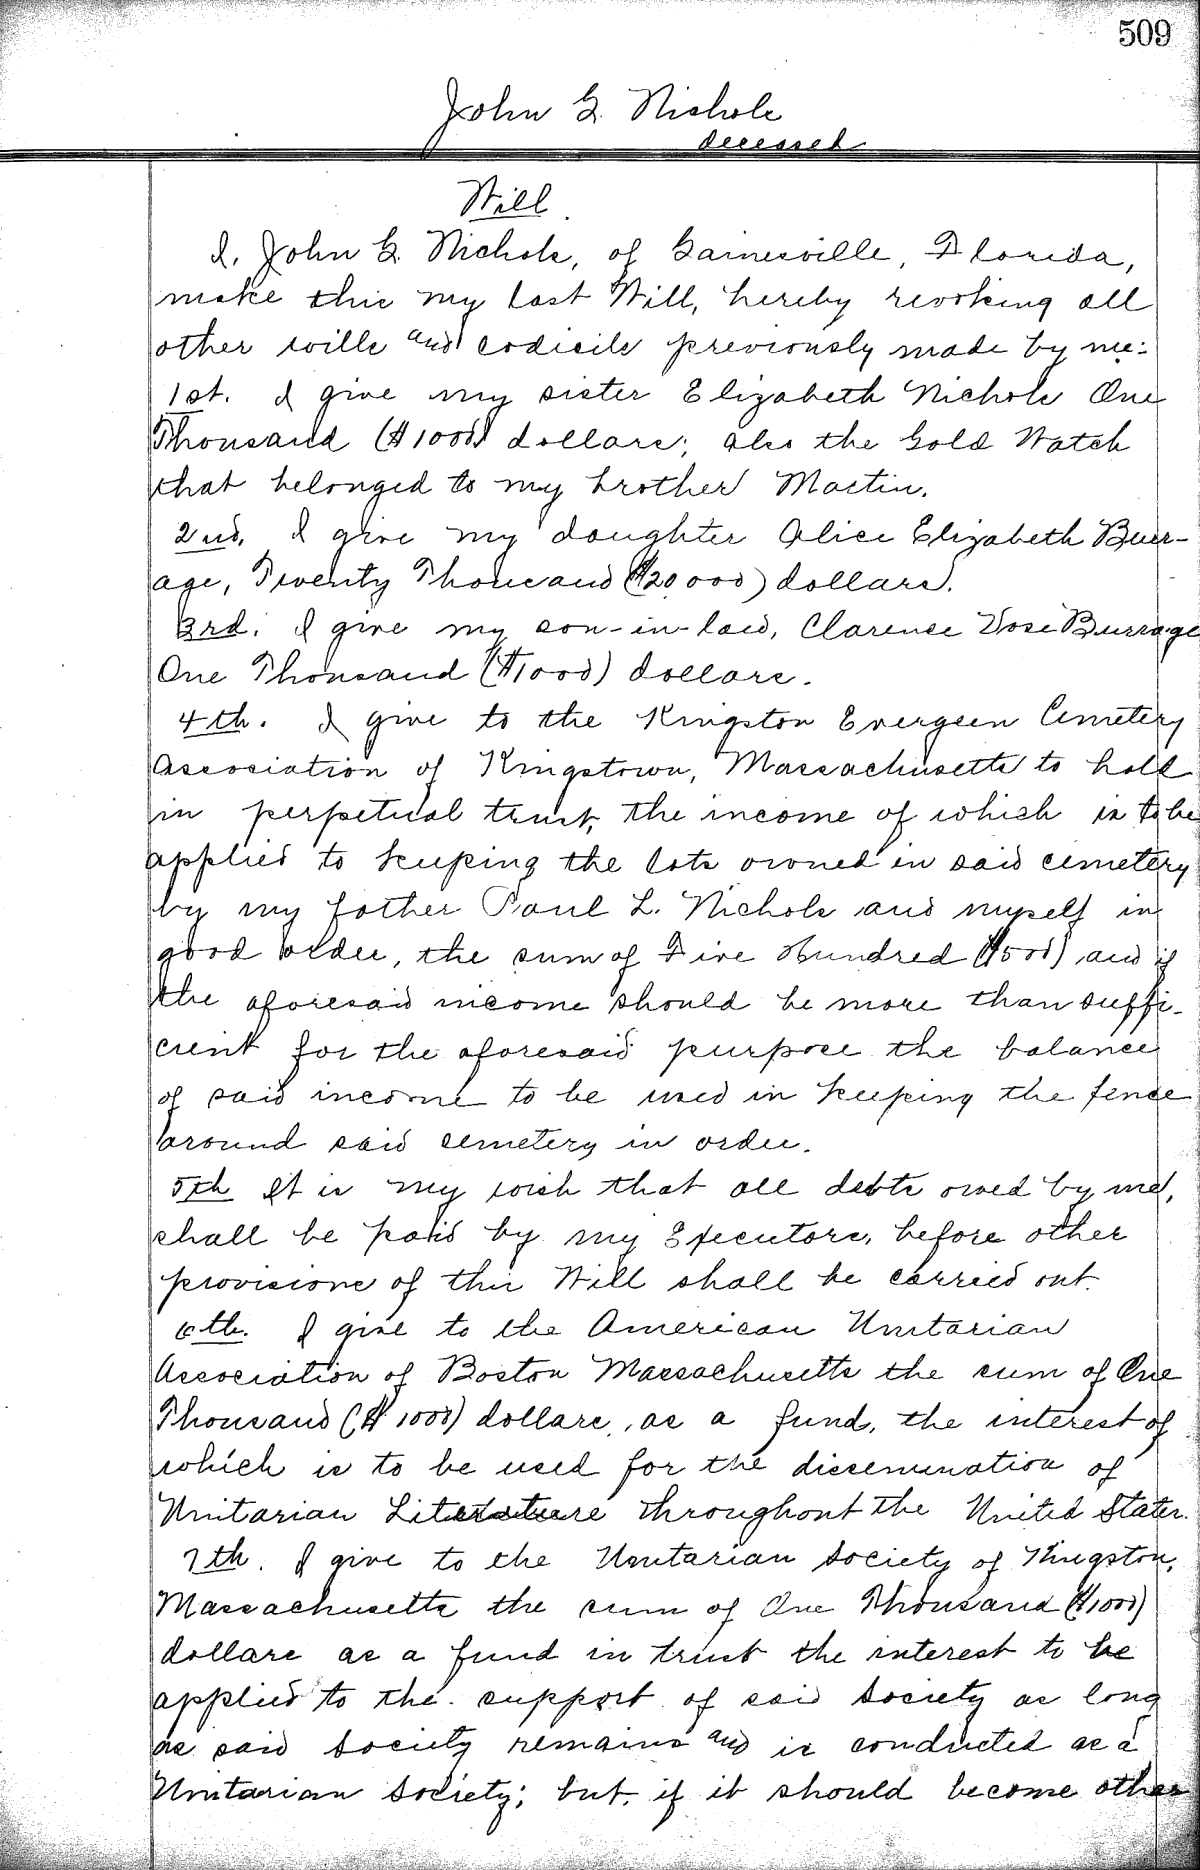 509
John G. Nichols
deceased
Will.
I, John G. Nichols, of Gainesville, Florida,
make this my last Will, hereby revoking all
other wills and codicils previously made by me:
1st. I give my sister Elizabeth Nichols One
Thousand ($1000) dollars; also the Gold Watch
that belonged to my brother Martin.
2nd. I give my daughter Alice Elizabeth Burr-
age, Twenty Thousand ($20,000) dollars.
3rd. I give my son-in-law, Clarence Vose Burrage
One Thousand ($1000) dollars.
4th. I give to the Kingston Evergeen Cemetery
Association of Kingstown, Massachusetts to hold
in perpetual trust, the income of which is to be
applied to keeping the lots owned in said cemetery
by my father Paul L. Nichols and myself in
good order, the sum of Five Hundred ($500) and if
the aforesaid income should be more than suffi-
cient for the aforesaid purpose the balance
of said income to be used in keeping the fence
around said cemetery in order.
5th It is my wish that all debts owed by me,
shall be paid by my Executors, before other
provisions of this Will shall be carried out.
6th. I give to the American Unitarian
Association of Boston Massachusetts the sum of One
Thousand ($1000) dollars, as a fund, the interest of
which is to be used for the dissemination of
Unitarian Literature throughout the United States.
7th. I give to the Unitarian Society of Kingston,
Massachusetts the sum of One Thousand ($1000)
dollars as a fund in trust the interest to be
applied to the support of said Society as long
as said Society remains and is conducted as a
Unitarian Society; but, if it should become other